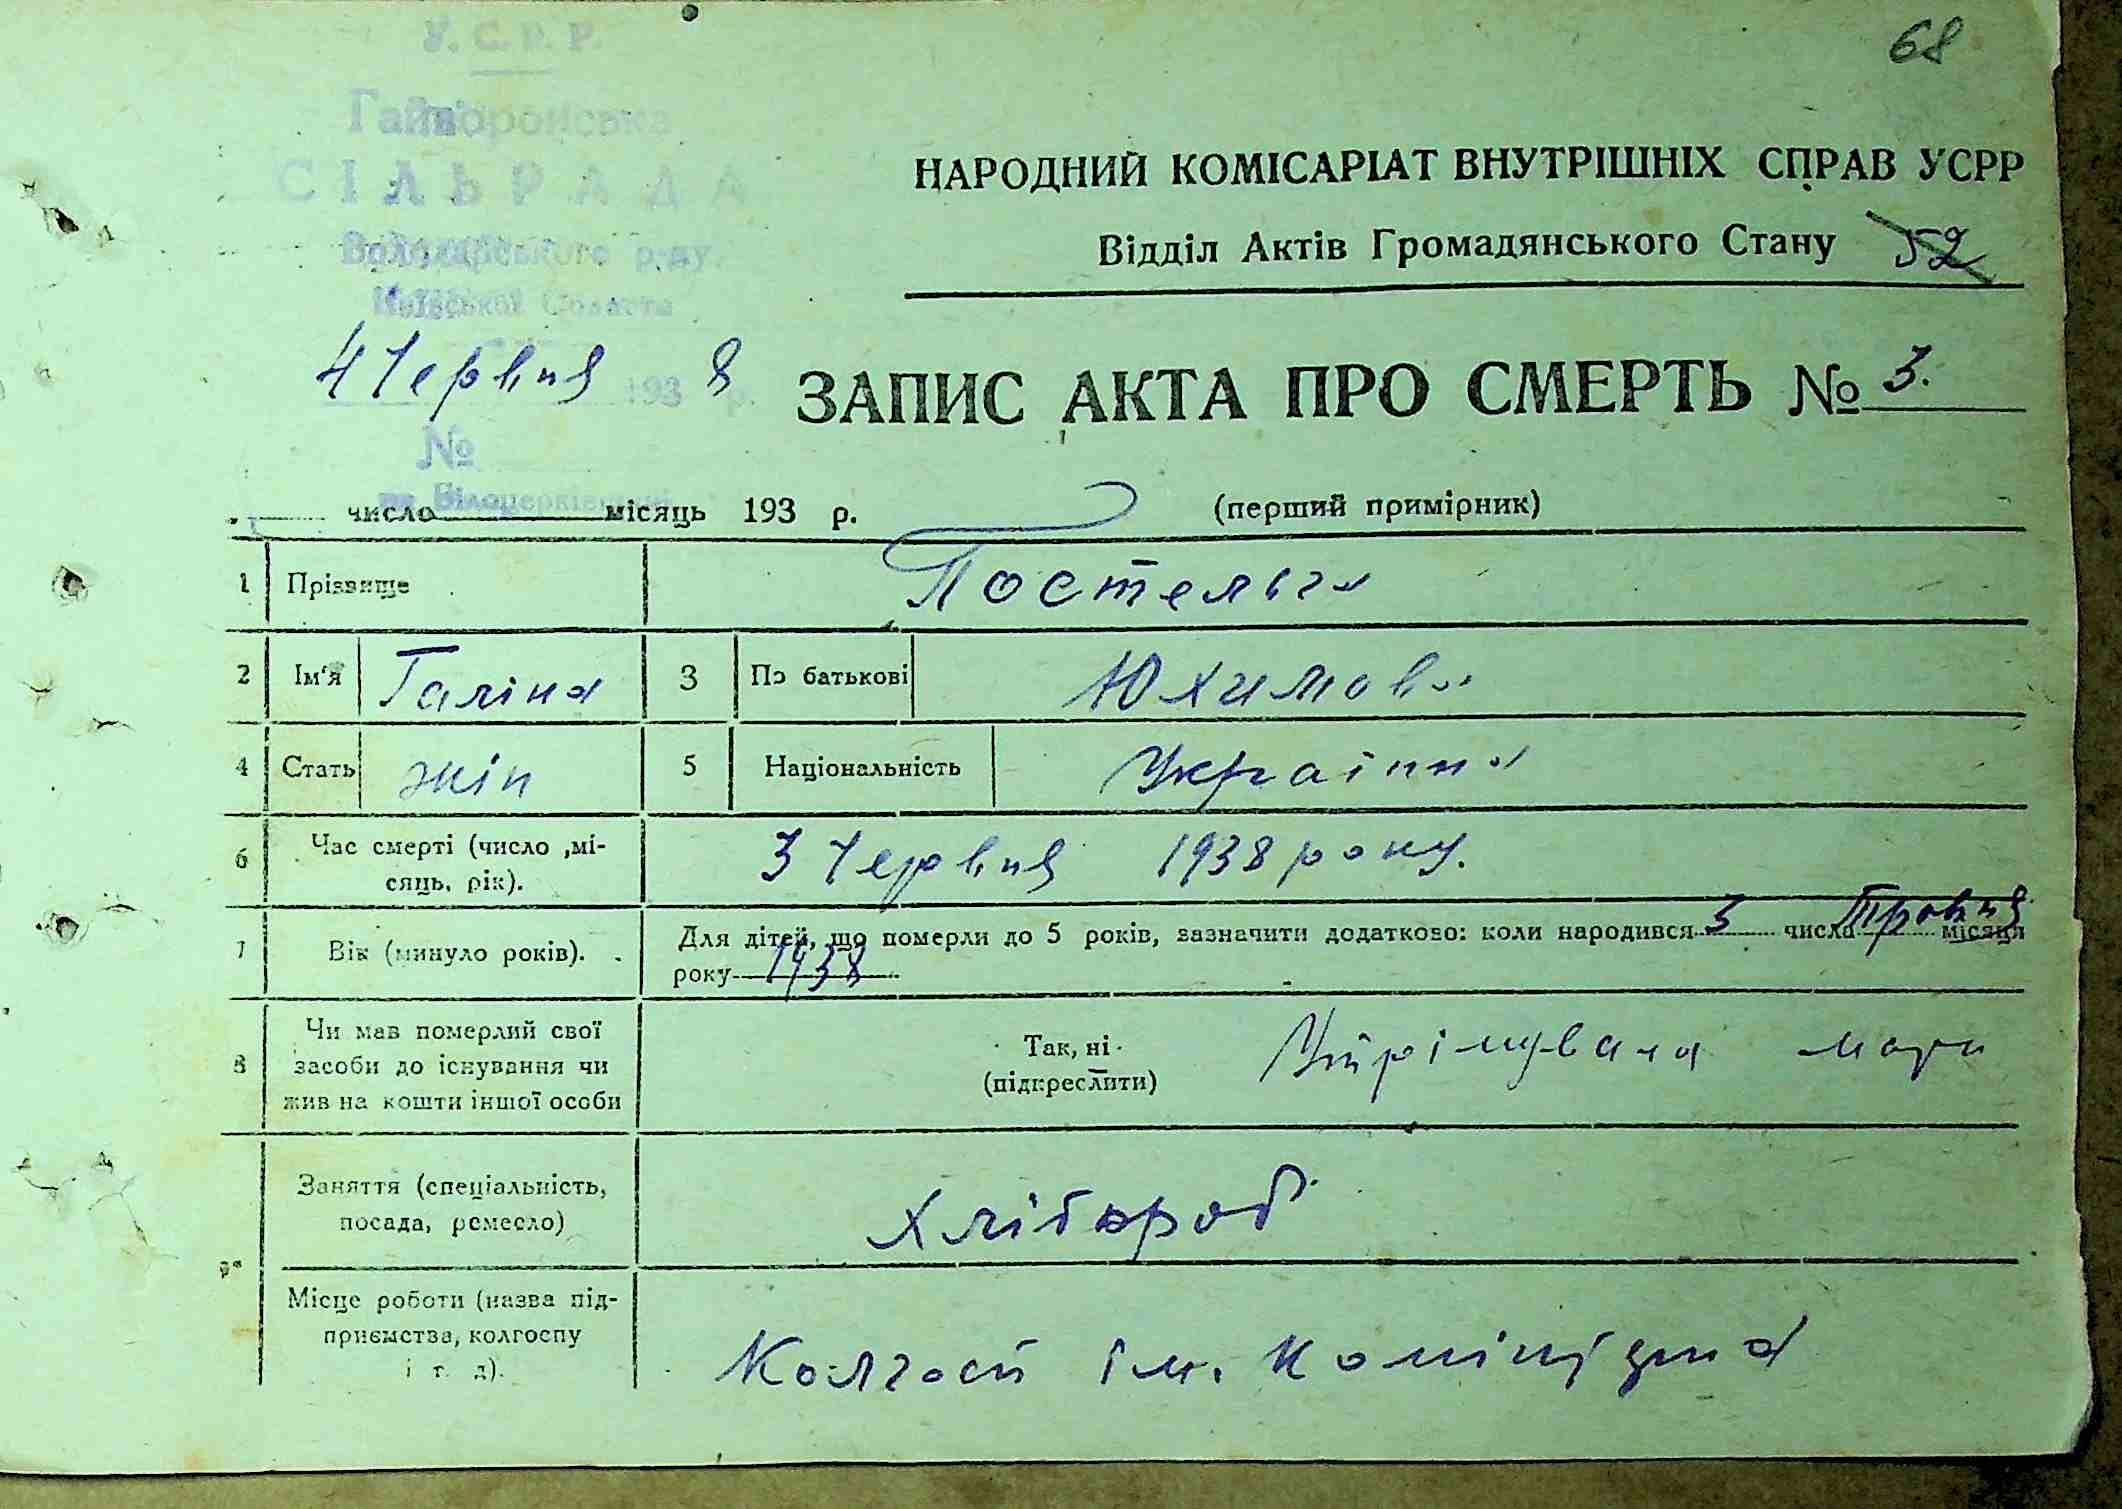 68
У. С. Р. Р.
Гайворонська
СІЛЬРАДА
Володарського р-ну.
Київської Області
НАРОДНИЙ КОМІСАРІАТ ВНУТРІШНІХ СПРАВ УСРР
Відділ Актів Громадянського Стану 52
4 Червня 1938 р.
ЗАПИС АКТА ПРО СМЕРТЬ № 3.
№
число місяць 193 р. (перший примірник)
1 Прізвище Постельга
2 Ім'я Галіна 3 По батькові Юхимовн
4 Стать жін 5 Національність Українка
6 Час смерті (число ,мі-
сяць, рік). 3 Червня 1938 року.
7 Вік (минуло років). Для дітей, що померли до 5 років, зазначити додатково: коли народився 3 числа Травня місяця
року 1938
8 Чи мав померлий свої
засоби до існування чи
жив на кошти іншої особи
Так, ні
(підкреслити)
мати
9 Заняття (спеціальність,
посада, ремесло) Хлібороб
Місце роботи (назва під-
приємства, колгоспу
і т. д).
Колгосп ім.